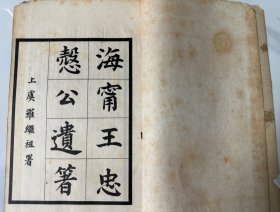 海甯王忠
慤公遺箸
上虞羅繼祖署